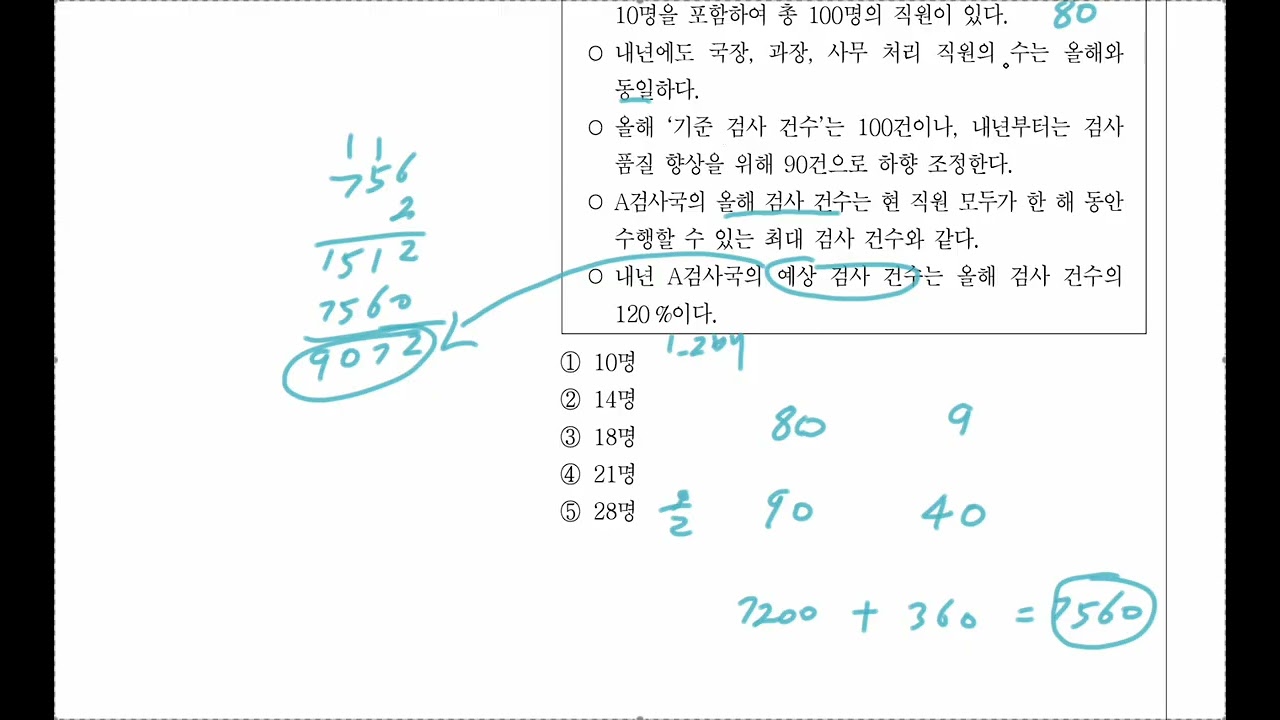 10명을 포함하여 총 100명의 직원이 있다.
80
○ 내년에도 국장, 과장, 사무 처리 직원의 수는 올해와
동일하다.
○ 올해 ‘기준 검사 건수’는 100건이나, 내년부터는 검사
품질 향상을 위해 90건으로 하향 조정한다.
○ A검사국의 올해 검사 건수는 현 직원 모두가 한 해 동안
수행할 수 있는 최대 검사 건수와 같다.
○ 내년 A검사국의 예상 검사 건수는 올해 검사 건수의
120%이다.
1 1
756
2
1512
7560
9072
① 10명
② 14명
③ 18명
④ 21명
⑤ 28명
80 9
90 40
7200 + 360 = 7560